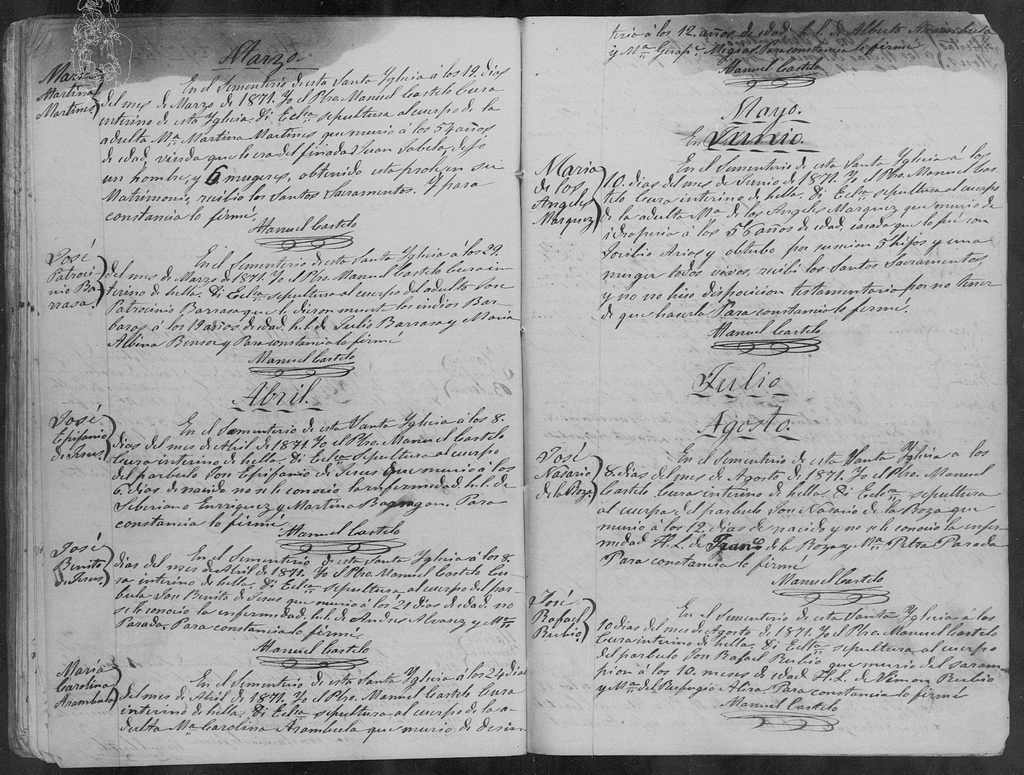 Marzo.
Maria
Martina
Martines
En el Sementerio de esta Santa Yglecia á los 12. dias
del mes de Marzo de 1871. Yo el Pbro. Manuel Castelo Cura
interino de esta Yglecia Di Ecltca sepultura al cuerpo de la
adulta Ma. Martina Martines que murió á los 54 años
de edad, viuda que lo era del finado Juan Sabeta, dejó
un hombre, y 6 mugeres, obtenido esta prole, en su
Matrimonio, recibio los Santos Sacramentos. Y para
constancia lo firmé.
Manuel Castelo
José
Patroci
nio Ba
rrasa.
En el Sementerio de esta Santa Yglecia á los 29.
del mes de Marzo de 1871. Yo el Pbro. Manuel Castelo Cura in
terino de hella. Di Ecltca sepultura al cuerpo del adulto José
Patrocinio Barrasa que le dieron muerte los indios Bar
baros á los 19 años de edad h. l. de Julio Barrasa y Maria
Albina Bensor y Para constancia lo firmé
Manuel Castelo
Abril.
José
Epifanio
de Jesus.
En el Sementerio de esta Santa Yglecia á los 8.
dias del mes de Abil de 1871. Yo el Pbro. Manuel Castelo
Cura interino de hella: Di Ecltca sepultura al cuerpo
del parbulo José Epifanio de Jesus que murió á los
6. dias de nacido no se le conocio la enfermedad h. l. de
Siberiano Enrriquez y Martina Barragan. Para
constancia lo firmé
Manuel Castelo
José
Benito
d. Jesus.
En el Sementerio de esta Santa Yglecia á los 8.
dias del mes de Abril de 1871. Yo el Pbro. Manuel Castelo Cu
ra interino de hella: Di Ecltca sepultura, al cuerpo del par
bulo José Benito de Jesus que murió á los 21 dias de edad. no
se le conocio la enfermedad. h. l. de Andres Alvarez y Ma.
Pasada. Para constancia lo firmé.
Manuel Castelo
Maria
Carolina
Arambula
En el Sementerio de esta Santa Yglecia á los 24 dias
del mes de Abril de 1871. Yo el Pbro. Manuel Castelo Cura
interino de hella, Di Ecltca sepultura al cuerpo de la a
dulta Ma. Carolina Arambula que murió de disin
teria á los 12 años de edad h. l. de Alberto Arambula
y Ma. Para constancia lo firmé
Manuel Castelo
Mayo.
En Junio
Maria
de los
Angeles
Marquez
En el Sementerio de esta Santa Yglecia á los
10. dias del mes de Junio de 1871. Yo el Pbro. Manuel Cas
telo Cura interino de hella. Di Ecltca sepultura al cuerpo
de la adulta Ma. de los Angeles Marquez que murió de
idropecia á los 56 años de edad, casada que lo fué con
Sirilio Arias y obtubo por sucecion 5 hijos y una
muger todos vivos, recibió los Santos Sacramentos,
y no no hiso disposicion testamentario por no tener
de que hacerlo Para constancia lo firmé.
Manuel Castelo
Julio
Agosto.
José
Nasario
de la Roza
En el Sementerio de esta Santa Yglecia a los
8. dias del mes de Agosto de 1871. Yo el Pbro. Manuel
Castelo Cura interino de hella. Di Ecltca sepultura
al cuerpo, del parbulo José Nasario de la Roza que
murió á los 12. dias de nacido y no se le conocio la enfer
medad H. L. de Franco de la Roza y Ma. Petra Pasada
Para constancia lo firmé
Manuel Castelo
José
Rafael
Rubio
En el Sementerio de esta Santa Yglecia á los
10. dias del mes de Agosto de 1871. Yo el Pbro. Manuel Castelo
Cura interino de hella. Di Ecltca sepultura al cuerpo
del parbulo José Rafael Rubio que murió del saram
pion á los 10. meses de edad H. L. de Simon Rubio
y Ma. del Refugio Para constancia lo firmé
Manuel Castelo